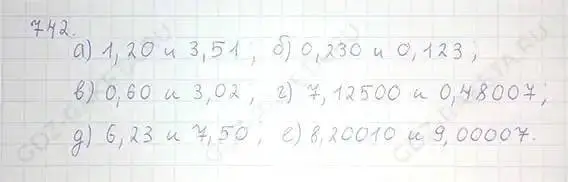 742.
а) 1,20 и 3,51; б) 0,230 и 0,123;
в) 0,60 и 3,02, г) 7,12500 и 0,48007;
д) 6,23 и 7,50; е) 8,20010 и 9,00007.